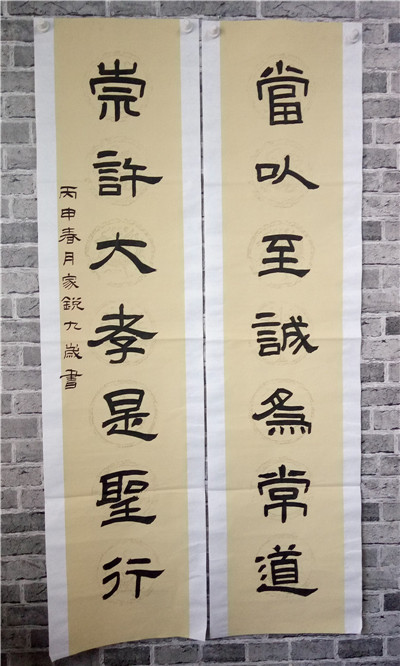 當以至誠為常道
崇許大孝是聖行
丙申春月家銳九歲書